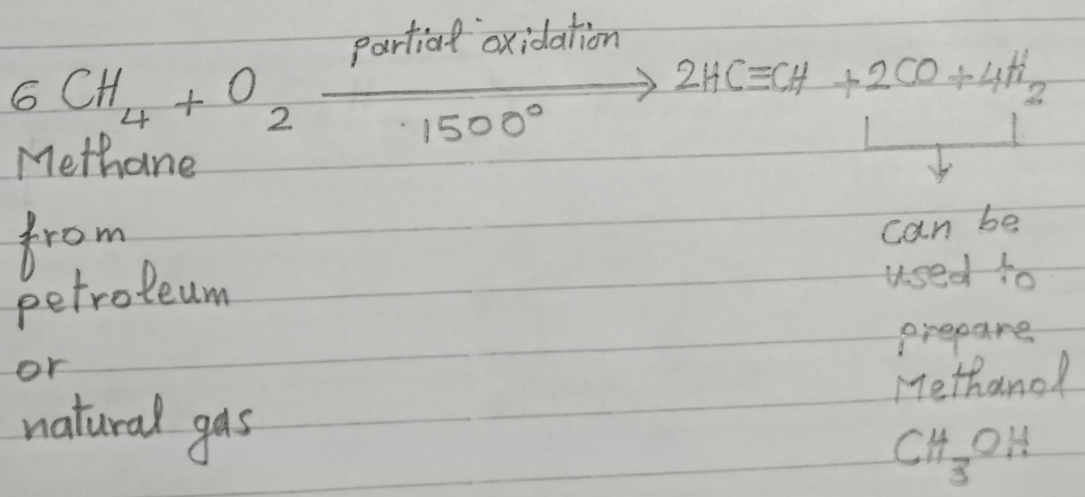 partial oxidation
6 CH₄ + O₂ ⟶ 2HC≡CH + 2CO + 4H₂
1500°
Methane
from
petroleum
or
natural gas
can be
used to
prepare
Methanol
CH₃OH